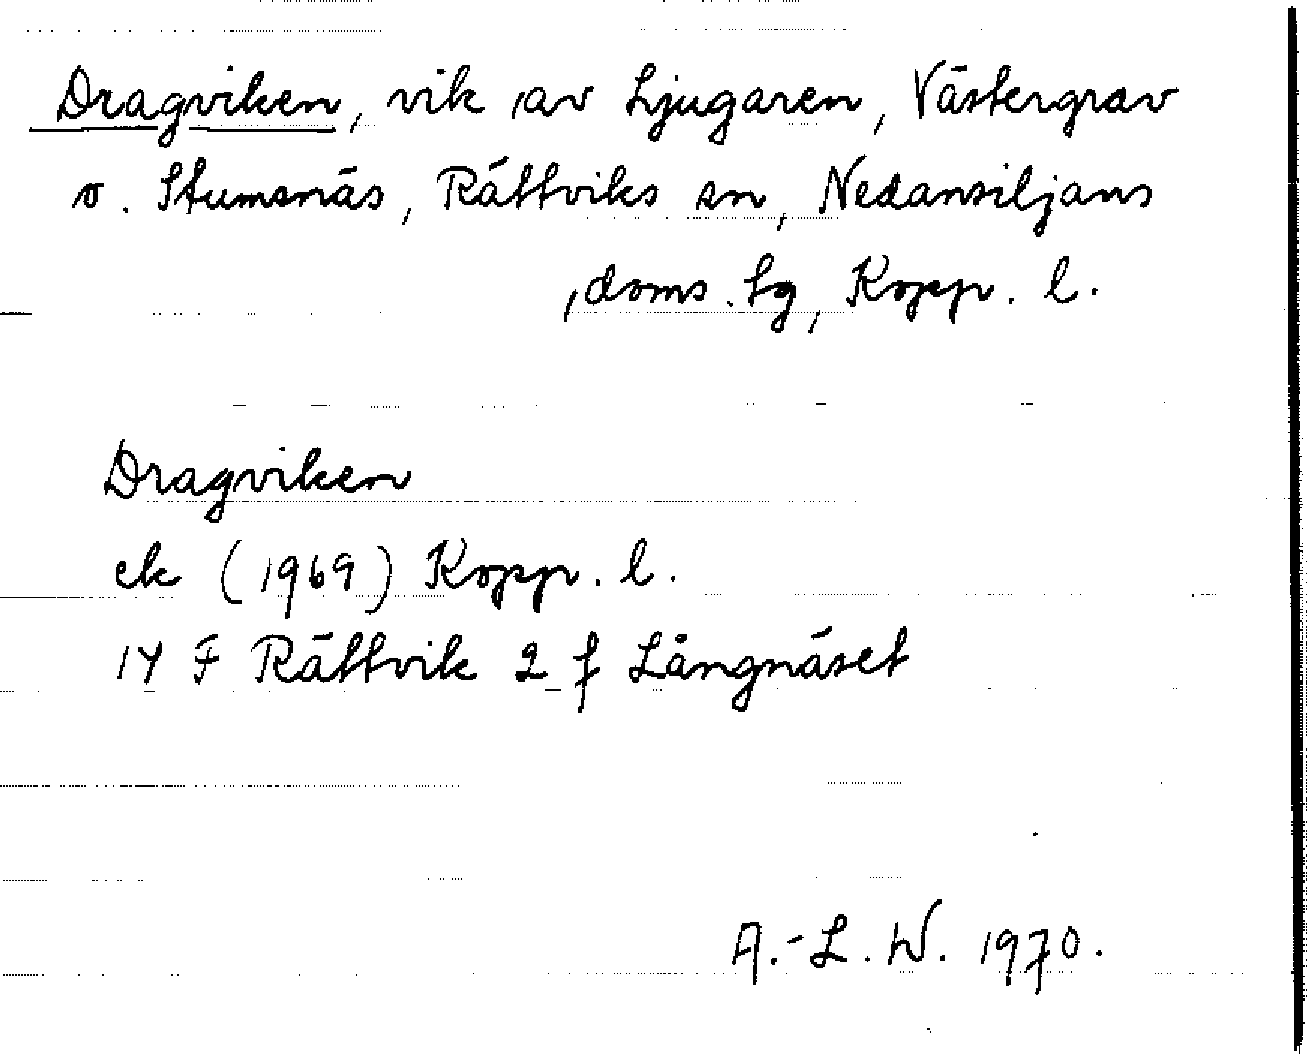 Dragviken, vik av Ljugaren, Västergrav
o. Stumsnäs, Rättviks sn, Nedansiljans
doms. lg, Kopp. l.
Dragviken
ek (1969) Kopp. l.
14 F Rättvik 2 f Långnäset
A.-L. W. 1970.